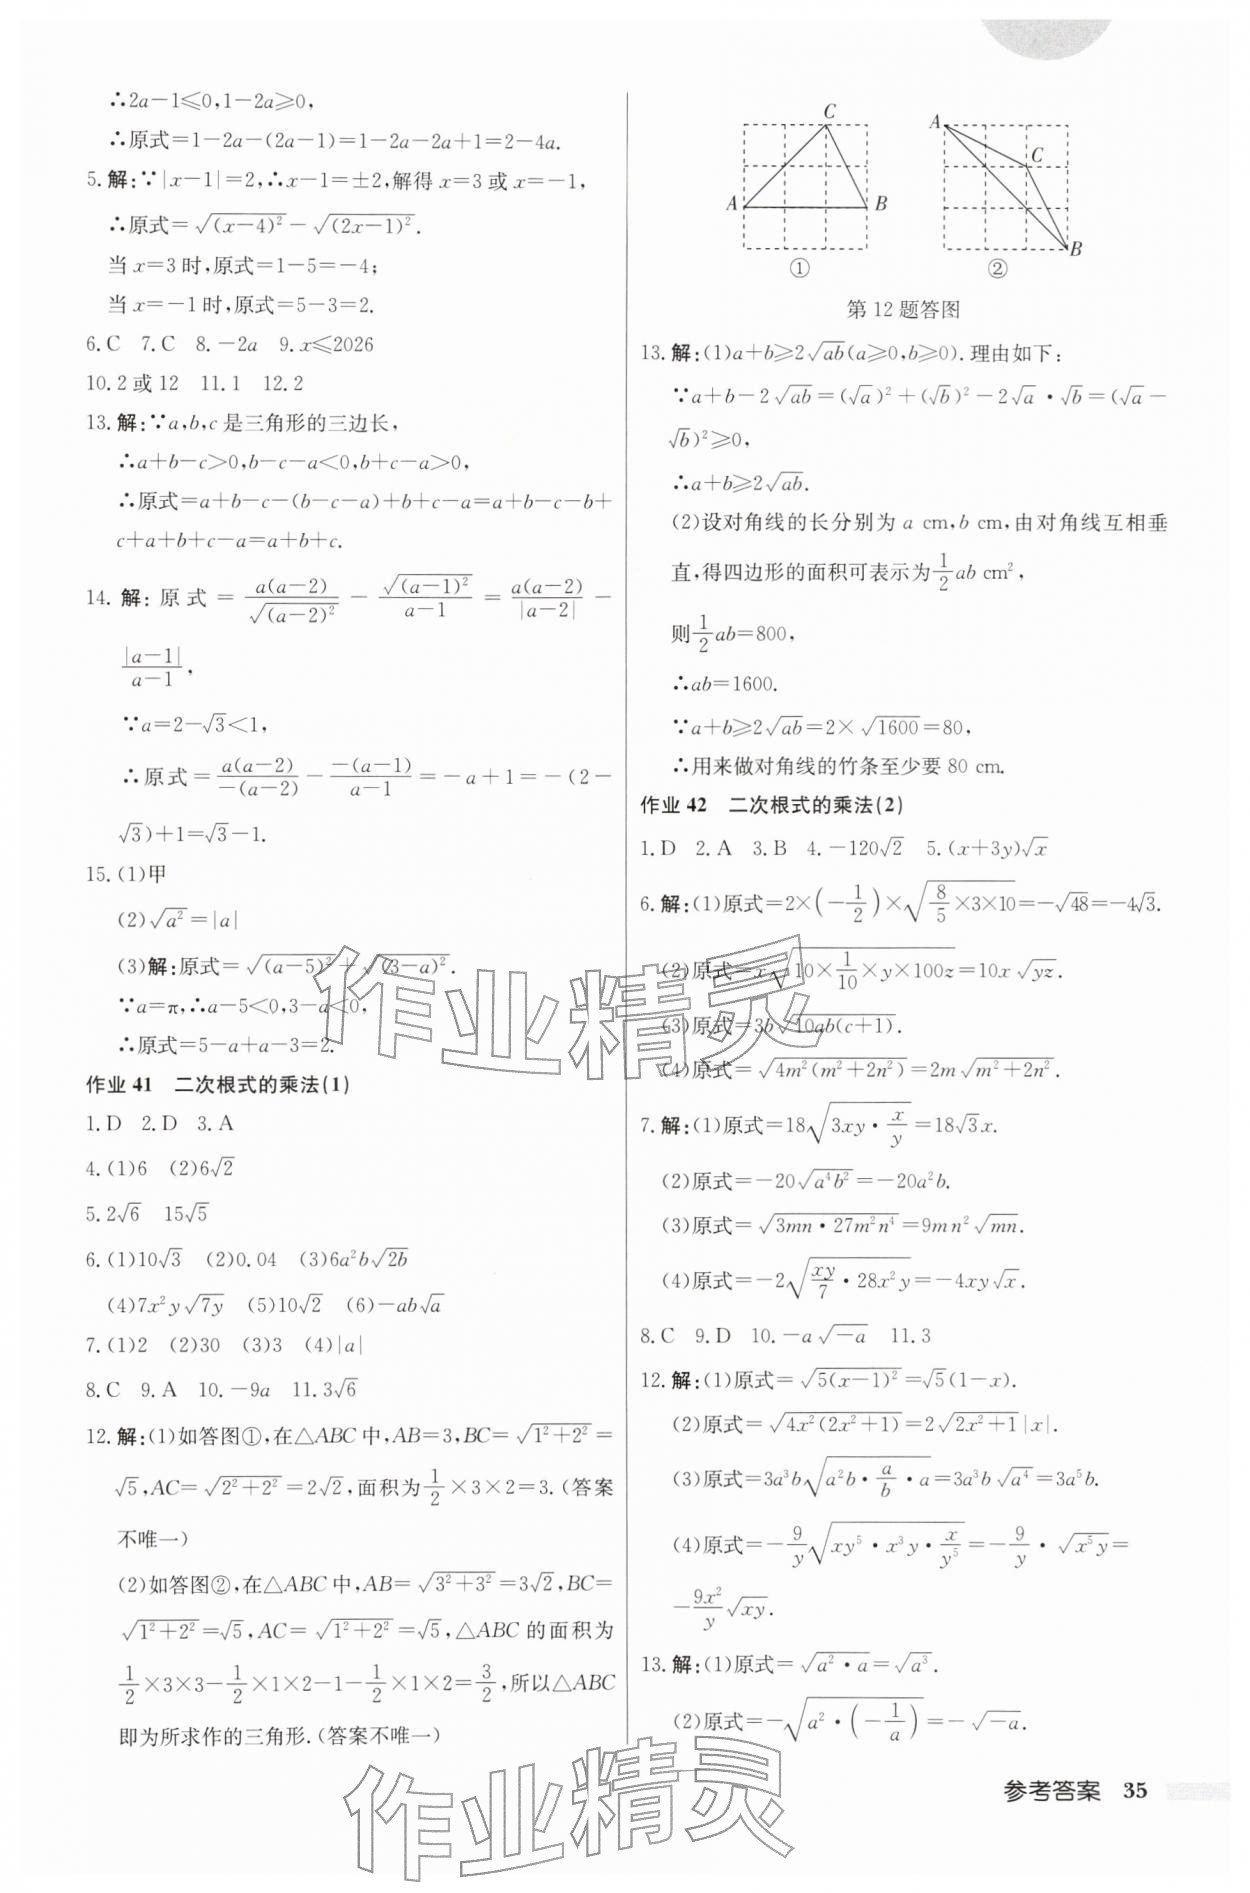 ∴2a−1≤0,1−2a≥0,
∴原式=1−2a−(2a−1)=1−2a−2a+1=2−4a.
5.解:∵|x−1|=2,∴x−1=±2,解得x=3或x=−1,
∴原式=√(x−4)²−√(2x−1)².
当x=3时,原式=1−5=−4;
当x=−1时,原式=5−3=2.
6.C 7.C 8.−2a 9.x≤2026
10.2或12 11.1 12.2
13.解:∵a,b,c是三角形的三边长,
∴a+b−c>0,b−c−a<0,b+c−a>0,
∴原式=a+b−c−(b−c−a)+b+c−a=a+b−c−b+
c+a+b+c−a=a+b+c.
14.解:原式=a(a−2)/√(a−2)²−√(a−1)²/(a−1)=a(a−2)/|a−2|−
|a−1|/(a−1),
∵a=2−√3<1,
∴原式=a(a−2)/−(a−2)−−(a−1)/(a−1)=−a+1=−(2−
√3)+1=√3−1.
15.(1)甲
(2)√a²=|a|
(3)解:原式=√(a−5)²+√(3−a)².
∵a=π,∴a−5<0,3−a<0,
∴原式=5−a+a−3=2.
作业41 二次根式的乘法(1)
1.D 2.D 3.A
4.(1)6 (2)6√2
5.2√6 15√5
6.(1)10√3 (2)0.04 (3)6a²b√2b
(4)7x²y√7y (5)10√2 (6)−ab√a
7.(1)2 (2)30 (3)3 (4)|a|
8.C 9.A 10.−9a 11.3√6
12.解:(1)如答图①,在△ABC中,AB=3,BC=√(1²+2²)=
√5,AC=√(2²+2²)=2√2,面积为1/2×3×2=3.(答案
不唯一)
(2)如答图②,在△ABC中,AB=√(3²+3²)=3√2,BC=
√(1²+2²)=√5,AC=√(1²+2²)=√5,△ABC的面积为
1/2×3×3−1/2×1×2−1−1/2×1×2=3/2,所以△ABC
即为所求作的三角形.(答案不唯一)
C
A
B
①
A
C
B
②
第12题答图
13.解:(1)a+b≥2√ab(a≥0,b≥0).理由如下:
∵a+b−2√ab=(√a)²+(√b)²−2√a·√b=(√a−
√b)²≥0,
∴a+b≥2√ab.
(2)设对角线的长分别为a cm,b cm,由对角线互相垂
直,得四边形的面积可表示为1/2ab cm²,
则1/2ab=800,
∴ab=1600.
∵a+b≥2√ab=2×√1600=80,
∴用来做对角线的竹条至少要80 cm.
作业42 二次根式的乘法(2)
1.D 2.A 3.B 4.−120√2 5.(x+3y)√x
6.解:(1)原式=2×(−1/2)×√(8/5×3×10)=−√48=−4√3.
(2)原式=x√(10×1/10×y×100z)=10x√yz.
(3)原式=3b√10ab(c+1).
(4)原式=√4m²(m²+2n²)=2m√(m²+2n²).
7.解:(1)原式=18√(3xy·x/y)=18√3x.
(2)原式=−20√(a⁴b²)=−20a²b.
(3)原式=√(3mn·27m²n⁴)=9mn²√mn.
(4)原式=−2√(xy/7·28x²y)=−4xy√x.
8.C 9.D 10.−a√−a 11.3
12.解:(1)原式=√5(x−1)²=√5(1−x).
(2)原式=√4x²(2x²+1)=2√(2x²+1)|x|.
(3)原式=3a³b√(a²b·a/b·a)=3a³b√a⁴=3a⁵b.
(4)原式=−9/y√(xy⁵·x³y·x/y⁵)=−9/y·√(x⁵y)=
−9x²/y√xy.
13.解:(1)原式=√(a²·a)=√a³.
(2)原式=−√(a²·(−1/a))=−√−a.
作业精灵
作业精灵
参考答案 35